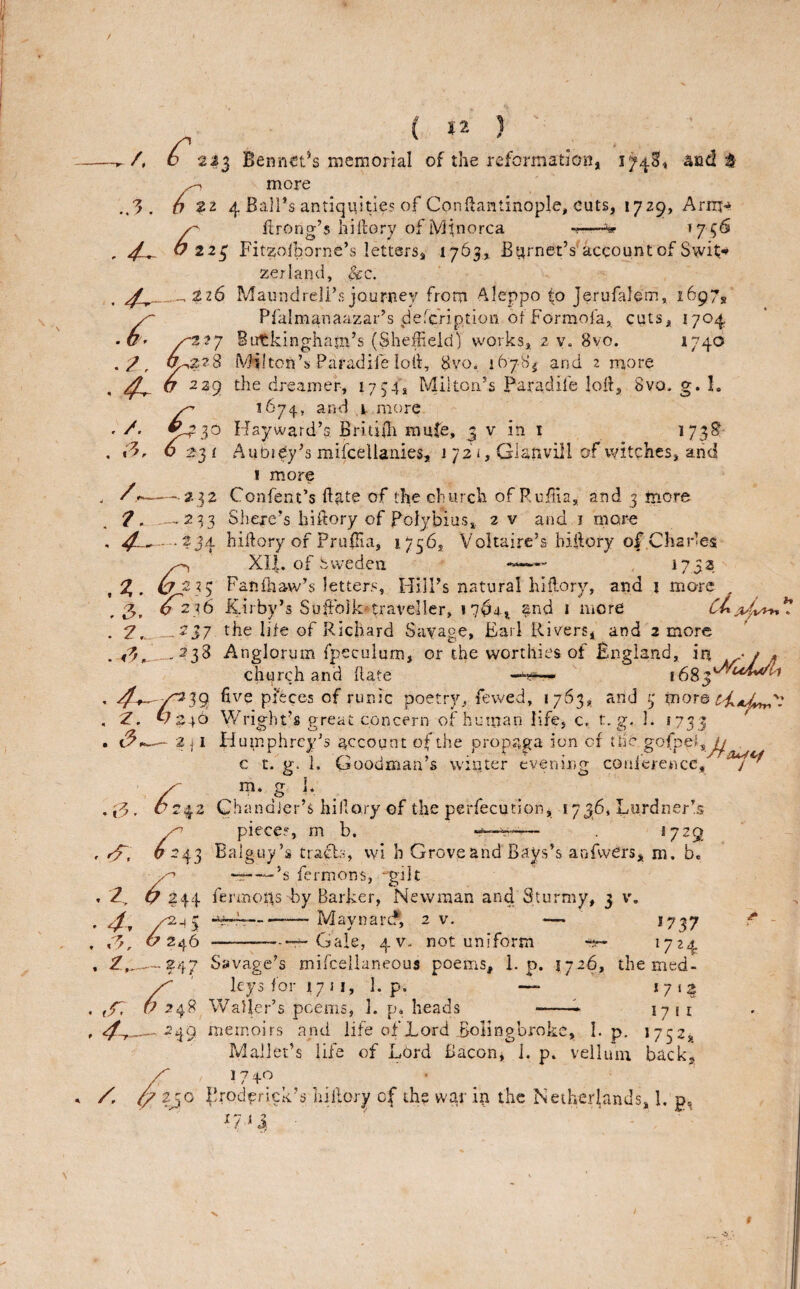 ( 12 )
. 1. 6 223 Bennet's memorial of the reformation, 1748, and 2
more
..3. 6 22 4 Ball's antiquities of Conſtantinople, cuts, 1729, Arm-
ſtrong's hiſtory of Minorca —— 1756
. 4. 6 225 Fitzoſborne's letters, 1763, Burnet's account of Swit-
zerland, &c.
. 4. — 226 Maundrell's journey from Aleppo to Jeruſalem, 1697,
Pſalmanaazar's deſcription of Formoſa, cuts, 1704
. 6. 227 Buckingham's (Sheffield) works, 2 v. 8vo. 1740
. 2. 6 228 Milton's Paradiſe loſt, 8vo. 1678, and 2 more
. 4. 6 229 the dreamer, 1754, Milton's Paradiſe loſt, 8vo. g. l.
1674, and 1 more
. 1. 6 230 Hayward's Britiſh muſe, 3 v in 1 1738
. 3. 6 231 Aubrey's miſcellanies, 1721, Glanvill of witches, and
1 more
. 1. — 232 Conſent's ſtate of the church of Ruſſia, and 3 more
. 2. — 233 Shere's hiſtory of Polybius, 2 v and 1 more
. 4. — 234 hiſtory of Pruſſia, 1756, Voltaire's hiſtory of Charles
XII. of Sweden —— 1732
. 2. 6 235 Fanſhaw's letters, Hill's natural hiſtory, and 1 more
. 3. 6 236 Kirby's Suffolk traveller, 1764, and 1 more
. 2. — 237 the life of Richard Savage, Earl Rivers, and 2 more
. 3. — 238 Anglorum ſpeculum, or the worthies of England, in
church and ſtate —— 1683
. 4. — 239 five pieces of runic poetry, ſewed, 1763, and 5 more
. 2. 6 240 Wright's great concern of human life, c. t. g. l. 1733
. 3. — 241 Humphrey's account of the propaga ion of the goſpel,
c t. g. l. Goodman's winter evening conference,
m. g l.
. 3. 6 242 Chandler's hiſtory of the perſecution, 1736, Lurdner's
pieces, m b. —— 1729
. 5. 6 243 Balguy's tracts, wi h Grove and Bays's anſwers, m. b.
——'s ſermons, gilt
. 2. 6 244 ſermons by Barker, Newman and Sturmy, 3 v.
. 4. 245 —— —— Maynard, 2 v. — 1737
. 3. 6 246 —— — Gale, 4 v. not uniform — 1724
. 2. — 247 Savage's miſcellaneous poems, l. p. 1726, the med-
leys for 1711, l. p. — 1712
. 5. 6 248 Waller's poems, l. p. heads —— 1711
. 4. — 249 memoirs and life of Lord Bolingbroke, l. p. 1752,
Mallet's life of Lord Bacon, l. p. vellum back,
1740
. 1. 6 250 Broderick's hiſtory of the war in the Netherlands, l. p.
1713